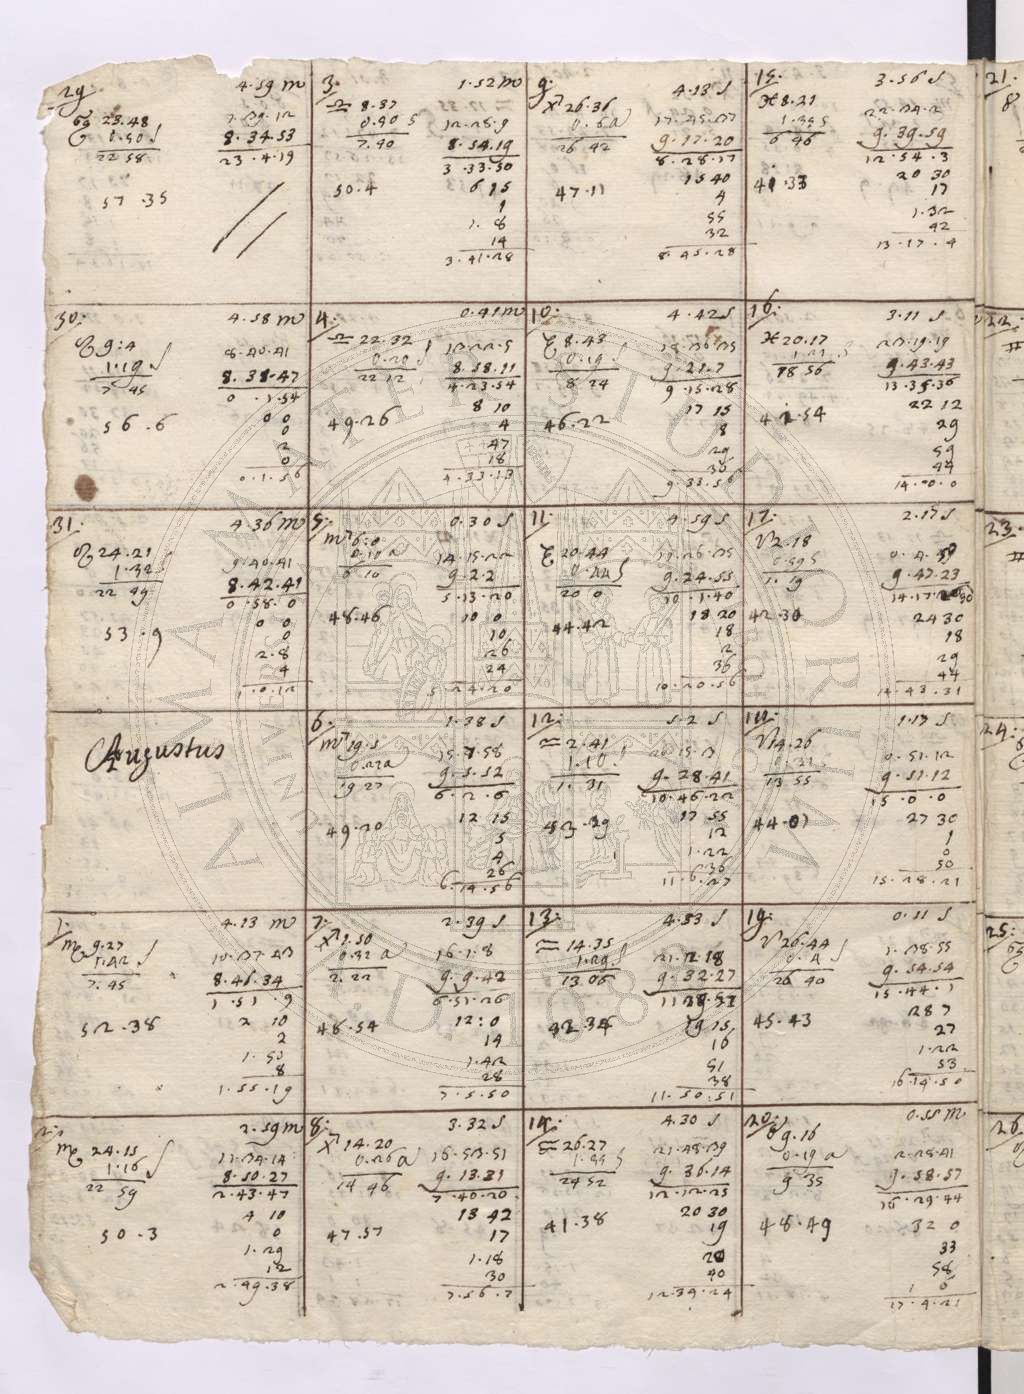 29:
4.59 m
23.48
1.50 s
22 58
8.34.53
23.4.19
57.35
30:
4.58 m
9:4
1.19 s
7.45
8.38.47
0.1.54
56.6
0 0
0
2
0
0.1.56
31:
4.36 m
24.21
1.32 s
22 49
8.42.41
0.58.0
53.9
0 0
0
2.8
4
1.0.12
Augustus
1:
4.13 m
9.27
1.42 s
7.45
8.46.34
1.51.9
52.38
2 10
2
1.50
8
1.55.19
2:
2.59 m
♏ 24.15
1.16 s
22 59
11.34.14
8.50.27
2.43.47
50.3
4 10
0
1.29
12
2.49.38
3:
1.52 m
♎ 8.37
0.50 s
7.40
12.22.9
8.54.19
3.33.50
50.4
6 15
1
1.8
14
3.41.28
4:
0.41 m
♎ 22.32
0.20 s
22 12
4.23.54
49.26
8 10
4
47
18
4.33.13
5:
0.30 s
6:0
0.10 a
6 10
14.15.22
9.2.2
5.13.20
48.46
10 0
10
26
24
5.24.20
6:
1.38 s
19.5
0.22 a
19 27
15.7.58
9.5.52
6.2.6
49.20
12 15
5
4
26
6.14.56
7:
2.39 s
♐ 1.50
0.32 a
2.22
16.1.8
9.9.42
6.51.26
48.54
12:0
14
1.42
28
7.5.50
8:
3.32 s
♐ 14.20
0.26 a
14 46
16.53.51
9.13.31
7.40.20
47.57
13 42
17
1.18
30
7.56.7
9:
4.13 s
♐ 26.36
0.6 a
26 42
17.45.37
9.17.20
8.28.17
47.11
15 40
4
55
32
8.45.28
10:
4.42 s
8.43
0.19 s
8 24
9.21.7
9.15.28
46.22
17 15
8
29
36
9.33.56
11:
4.59 s
20.44
0.44 s
20 0
19.26.35
9.24.55
10.1.40
44.42
18 20
18
2
36
10.20.56
12:
5.2 s
♒ 2.41
1.10 s
1.31
9.28.41
10.46.22
43.29
17 55
12
1.22
36
11.6.27
13:
4.53 s
♒ 14.35
1.29 s
13.06
9.32.27
42.34
19 15
16
51
38
11.50.51
14:
4.30 s
♒ 26.27
24 52
21.48.39
9.36.14
12.12.25
41.38
20 30
19
20
40
12.34.24
15:
3.56 s
♓ 8.21
1.35 s
6 46
22.34.2
9.39.59
12.54.3
41.33
20 30
17
1.32
42
13.17.4
16:
3.11 s
♓ 20.17
18 56
23.19.19
9.43.43
13.35.36
42.54
22 12
29
59
44
14.00.0
17:
2.17 s
♈ 2.18
0.59 s
1.19
9.47.23
42.30
24 30
18
29
44
14.43.31
18:
1.17 s
♈ 14.26
0.31
13 55
0.51.12
9.51.12
15.0.0
44.0
27 30
1
0
50
15.28.21
19:
0.11 s
♈ 26.44
0.4 s
26 40
1.38.55
9.54.54
15.44.1
45.43
28 7
27
1.22
53
16.14.50
20:
0.55 m
♉ 9.16
0.19 a
9 35
2.28.41
9.58.57
16.29.44
48.49
32 0
33
58
1 6
17.4.21
21.
8
22:
23.
24:
25:
26.